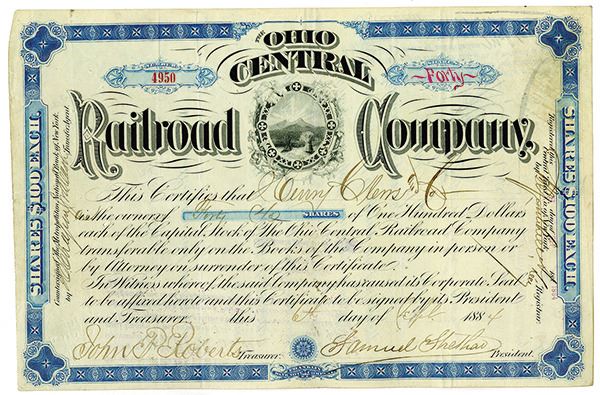 THE
OHIO
CENTRAL
4950
Forty
Railroad Company.
This Certifies that Henry Clews & Co
is the owner of Forty SHARES of One Hundred Dollars
each of the Capital Stock of The Ohio Central Railroad Company
transferable only on the Books of the Company in person or
by Attorney on surrender of this Certificate.
In Witness whereof, the said Company has caused its Corporate Seal
to be affixed hereto and this Certificate to be signed by its President
and Treasurer this 6th day of 1884
John P. Roberts Treasurer. Samuel President.
SHARES $100 EACH.
Countersigned the Metropolitan National Bank of New York,
by Transfer Agent.
Registrar
SHARES $100 EACH.